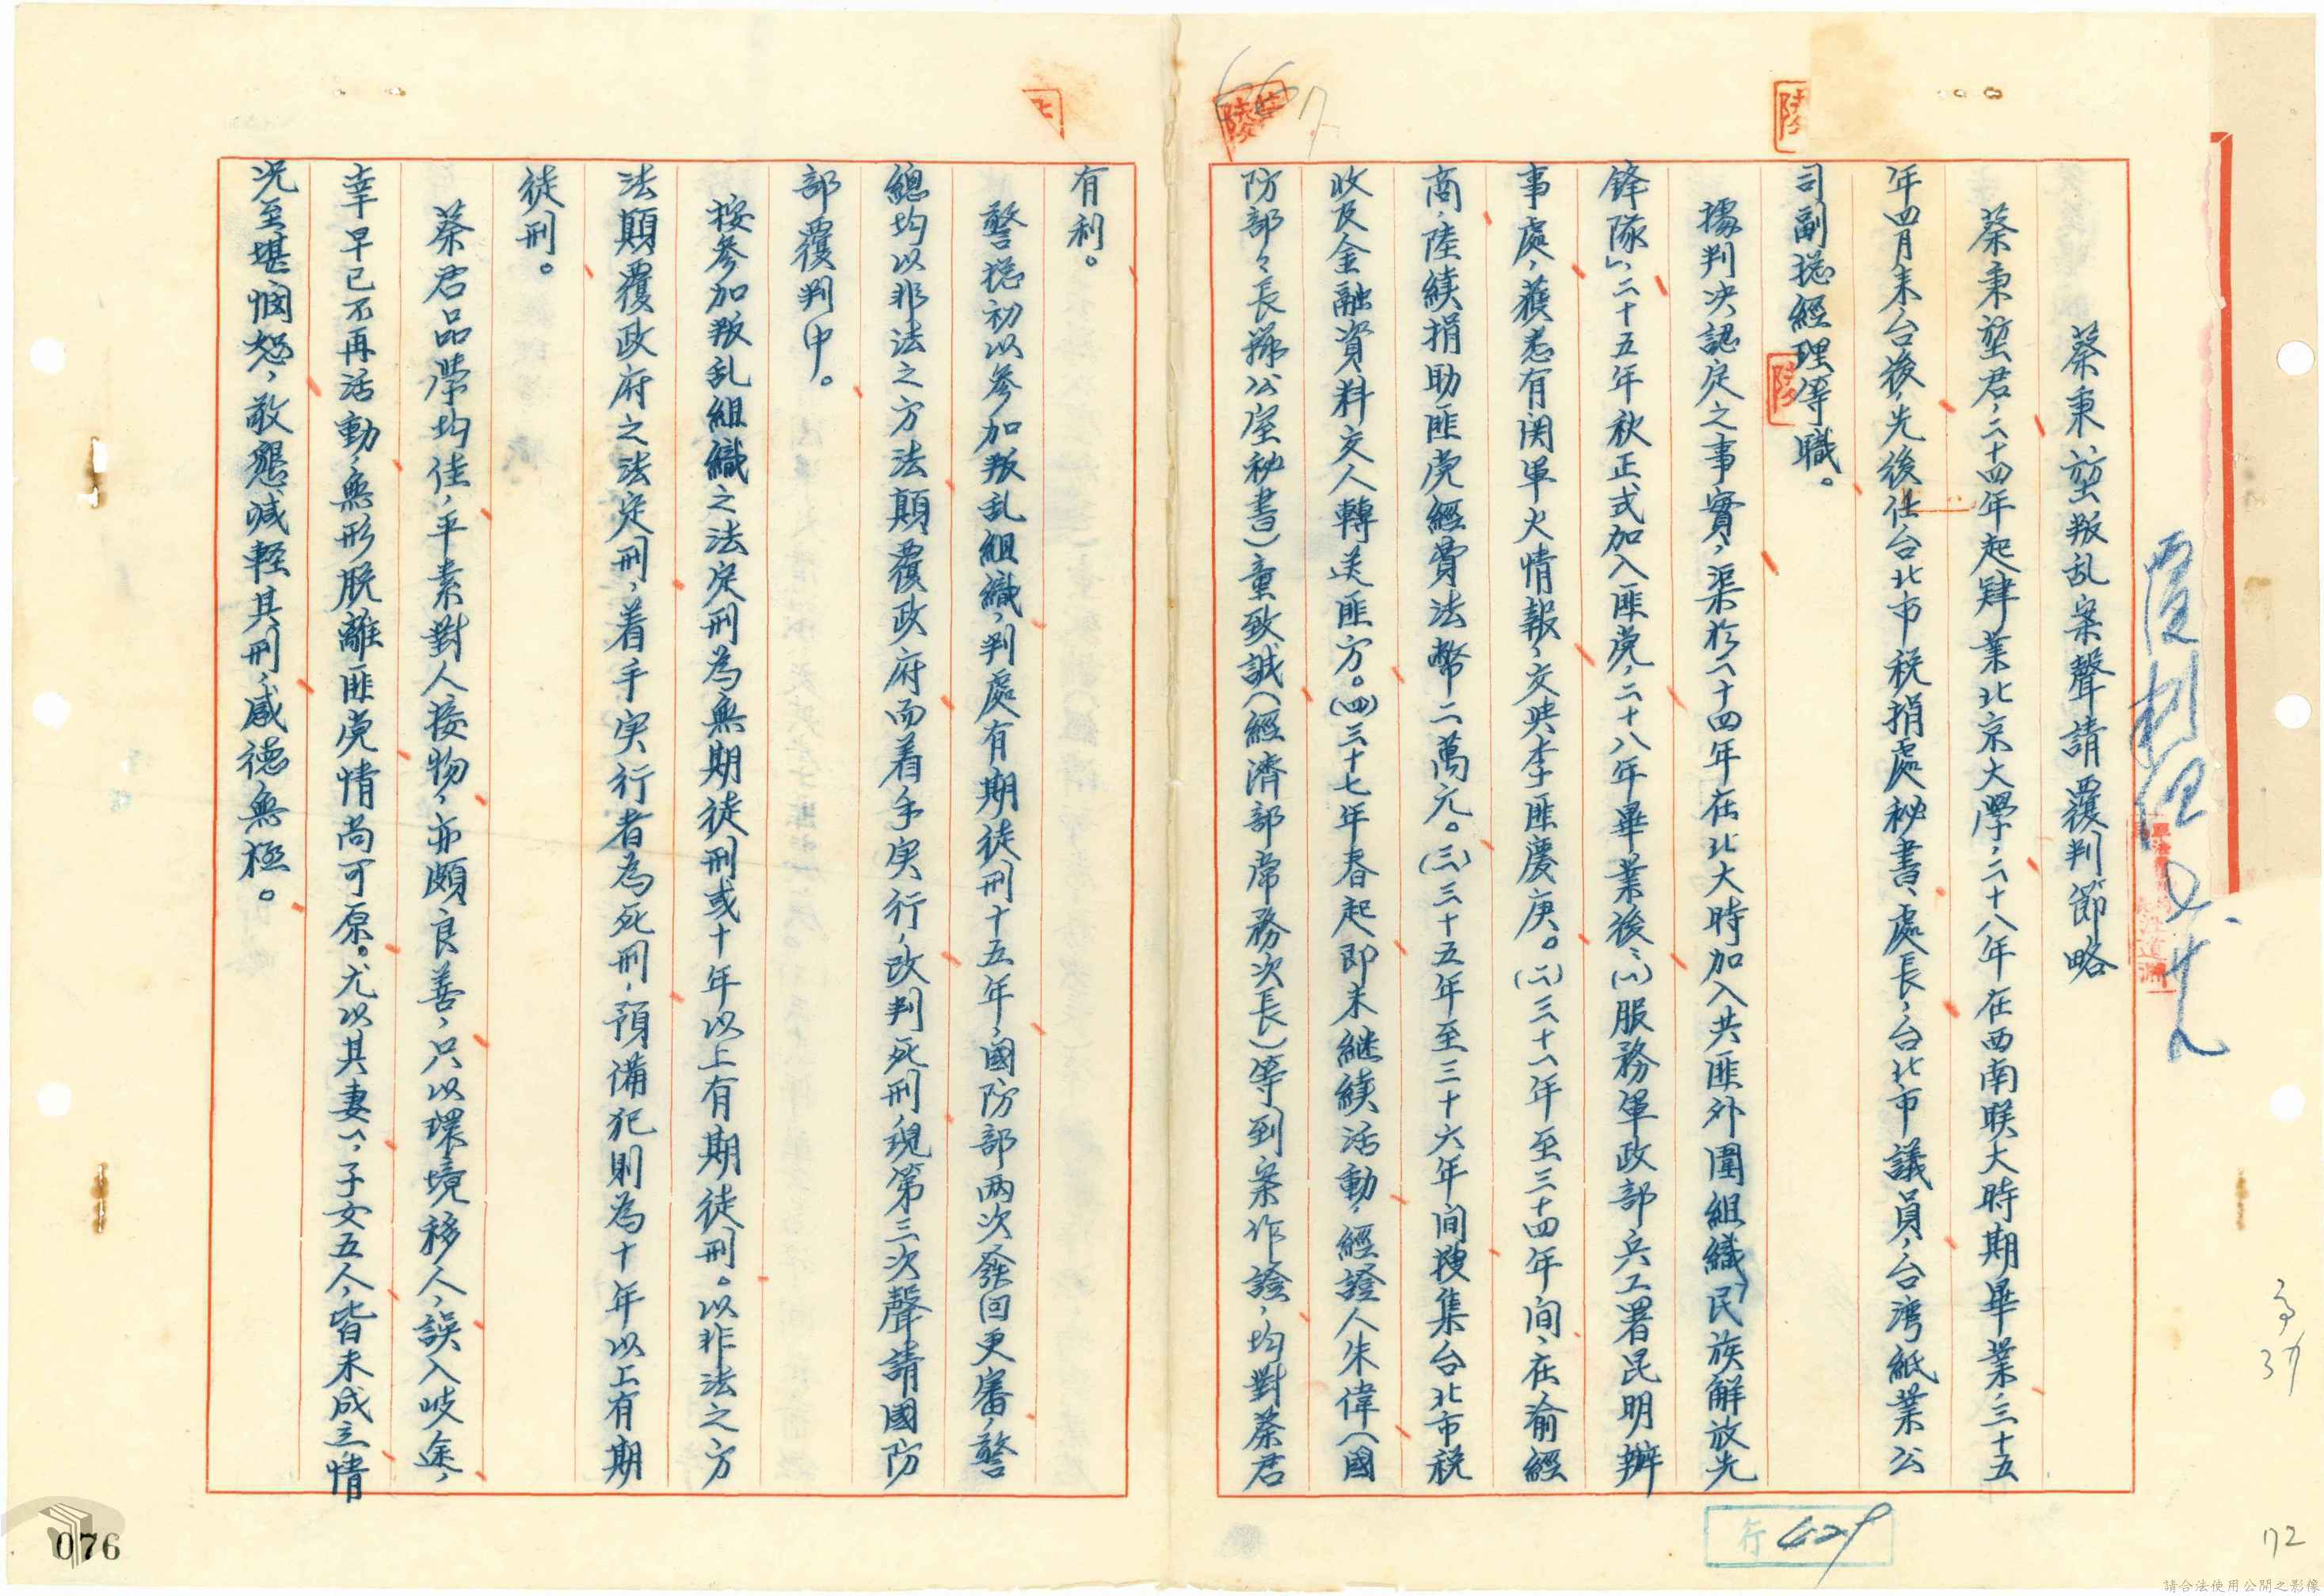 蔡秉堃叛乱案聲請覆判節略
蔡秉堃君，二十四年起肄業北京大學，二十八年在西南联大時期畢業，三十五
年四月来台後，先後任台北市税捐處秘書、處長，台北市議員，台湾紙業公
司副総經理等職。
據判决認定之事實，渠於(一)十四年在北大時加入共匪外圍組織「民族解放先
鋒隊」，二十五年秋正式加入匪党，二十八年畢業後，(一)服務軍政部兵工署昆明辦
事處，獲悉有関軍火情報，交共李匪慶庚。(二)三十一年至三十四年间，在渝經
商，陸續捐助匪党經費法幣二萬元。(三)三十五年至三十六年间搜集台北市税
收及金融資料交人轉送匪方。(四)三十七年春起即未継續活動，經證人朱偉(國
防部々長辦公室秘書)童致誠(經濟部常務次長)等到案作證，均對蔡君
有利。
警总初以參加叛乱組織，判處有期徒刑十五年，國防部两次發回更審，警
總均以非法之方法顛覆政府而着手実行，改判死刑現第三次聲請國防
部覆判中。
按參加叛乱組織之法定刑為無期徒刑或十年以上有期徒刑。以非法之方
法顛覆政府之法定刑，着手実行者為死刑，預備犯則為十年以上有期
徒刑。
蔡君品學均佳，平素對人接物，亦頗良善，只以環境移人，誤入岐途，
幸早已不再活動，無形脱離匪党情尚可原。尤以其妻一，子女五人，皆未成立情
况至堪悯恕，敬懇减軽其刑，感德無極。
行 429
076
72
請合法使用公開之影像